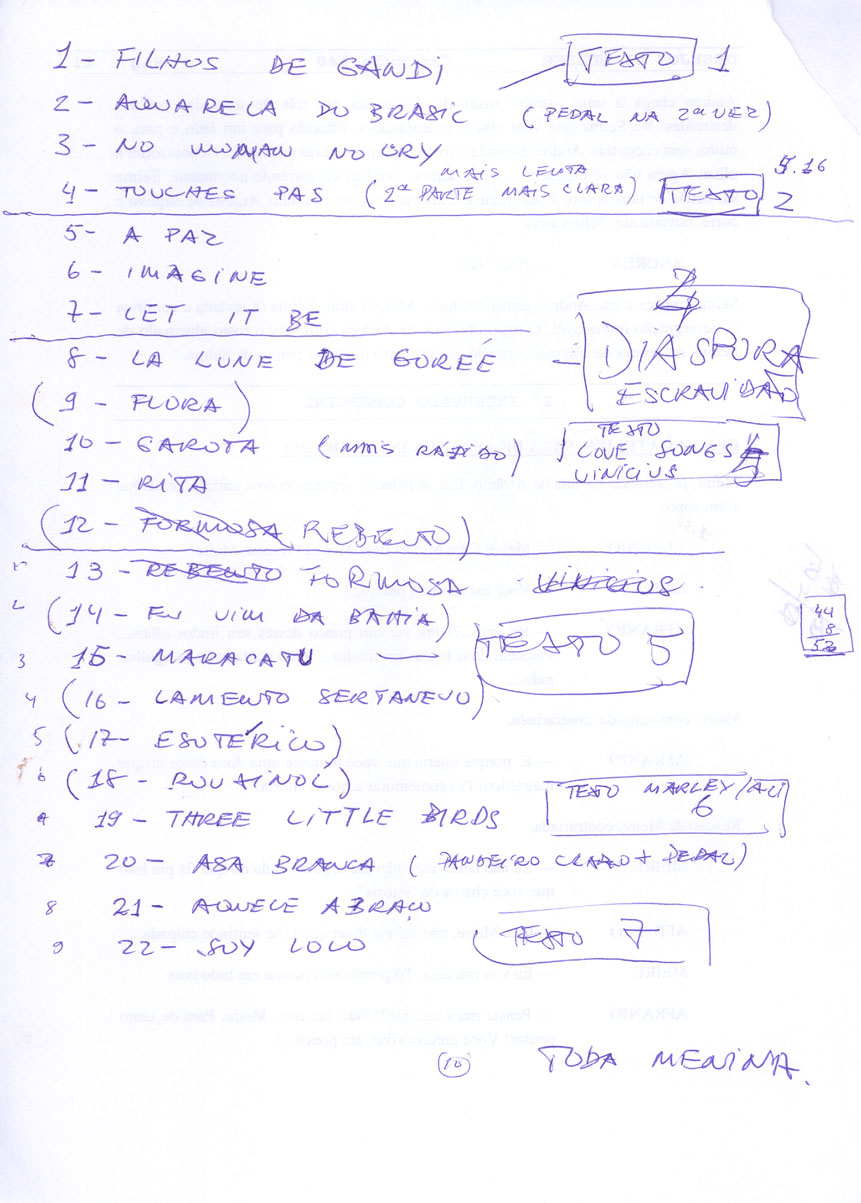 1- FILHOS DE GANDI TEXTO 1
2- AQUARELA DO BRASIL (PEDAL NA 2ª VEZ)
3- NO WOMAN NO CRY
MAIS LENTA
4- TOUCHES PAS (2ª PARTE MAIS CLARA) TEXTO 2 5.16
5- A PAZ
6- IMAGINE
7- LET IT BE
8- LA LUNE DE GOREÉ - DIASPORA
ESCRAVIDÃO
(9- FLORA)
10- GAROTA (MAIS RAPIDO) TEXTO
LOVE SONGS 4
VINICIUS
11- RITA
(12- FORMOSA REBENTO)
13- REBENTO FORMOSA VINICIUS
(14- EU VIM DA BAHIA)
44
8
52
3 15- MARACATU TEXTO 5
4 (16- LAMENTO SERTANEJO)
5 (17- ESOTÉRICO)
6 (18- ROUXINOL)
19- THREE LITTLE BIRDS TEXTO MARLEY/ALI
6
7 20- ASA BRANCA (PANDEIRO CLARO + PEDAL)
8 21- AQUELE ABRAÇO
9 22- SOY LOCO TEXTO 7
(10) TODA MENINA.